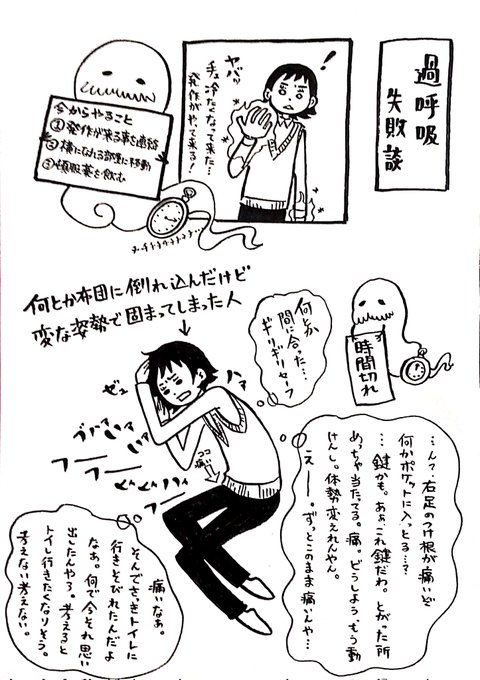 過呼吸
失敗談
!
ヤバッ
手冷たくなって来た…
発作がやって来る!
今からやること
①発作が来る事を連絡
②横になれる部屋に移動
③頓服薬を飲む
チ.チ.チ.チ.チ.チ.チ…
何とか布団に倒れ込んだけど
変な姿勢で固まってしまった人
何とか
間に合った…
ギリギリセーフ
時間切れ
ゼェ
ハァ
フー
フー
ココ
痛い
…ん?右足のつけ根が痛いぞ
何かポケットに入っとる…?
…鍵かも。あぁ、これ鍵だわ。とがった所
めっちゃ当たてる。痛。どうしよう、もう動
けんし。体勢変えれんやん。
えーー。ずっとこのまま痛いんや…
痛いなぁ。
そんでさっきトイレに
行きそびれたんだよ
なぁ。何で今それ思い
出したんやろ。考えると
トイレ行きたくなりそう。
考えない考えない。